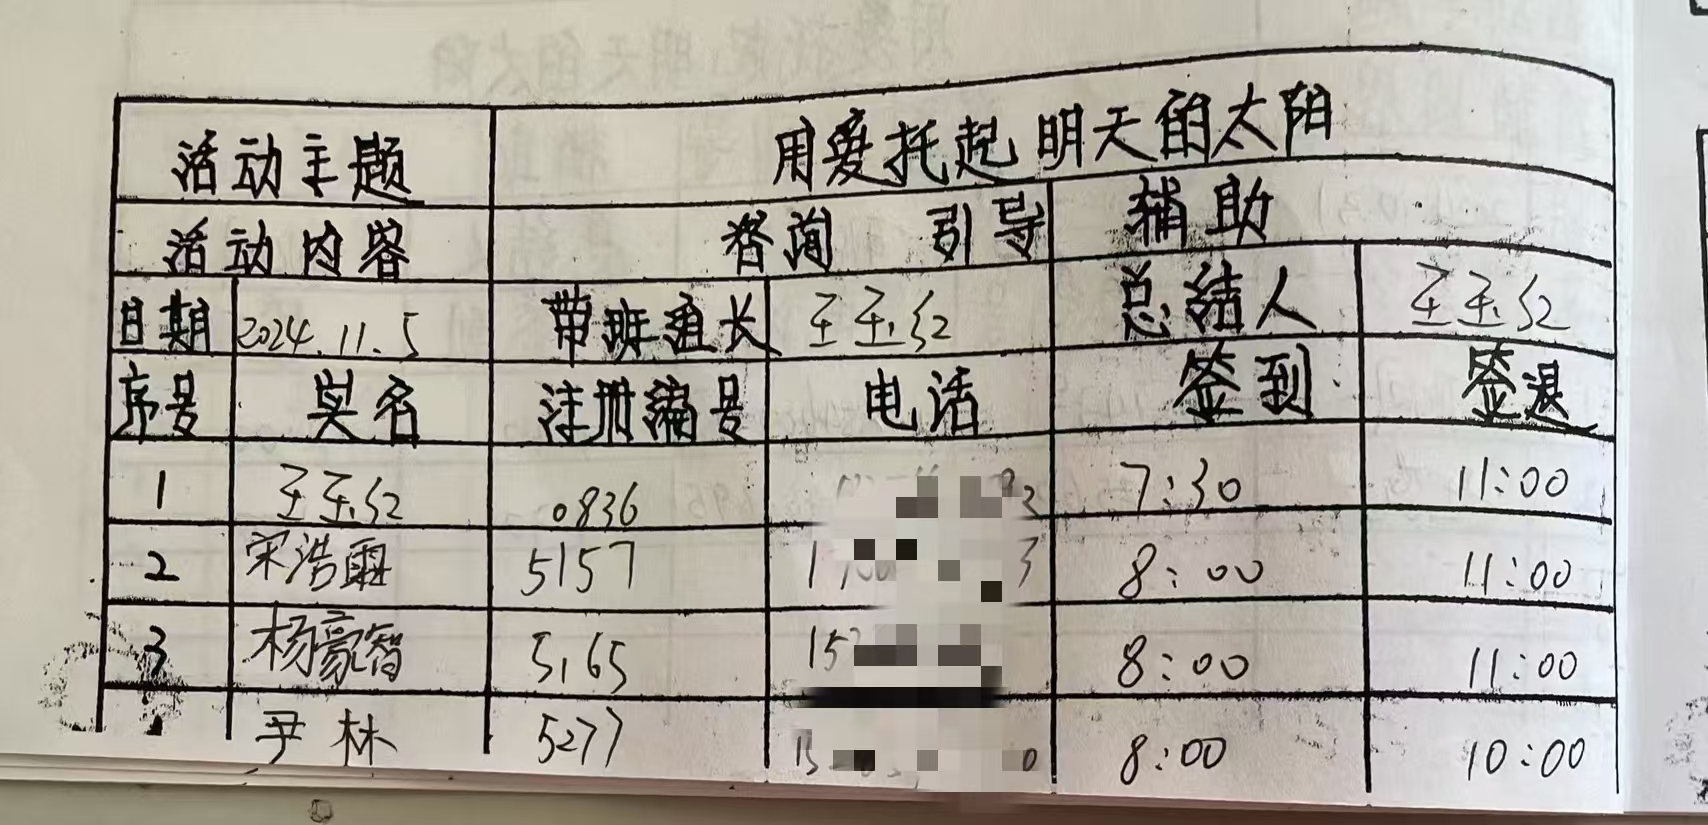 活动主题 用爱托起明天的太阳
活动内容 咨询 引导 辅助
日期 2024.11.5 带班组长 王玉红 总结人 王玉红
序号 姓名 注册编号 电话 签到 签退
1 王玉红 0836 7:30 11:00
2 宋浩 5157 8:00 11:00
3 杨豪智 5165 15 8:00 11:00
尹林 5277 15 8:00 10:00